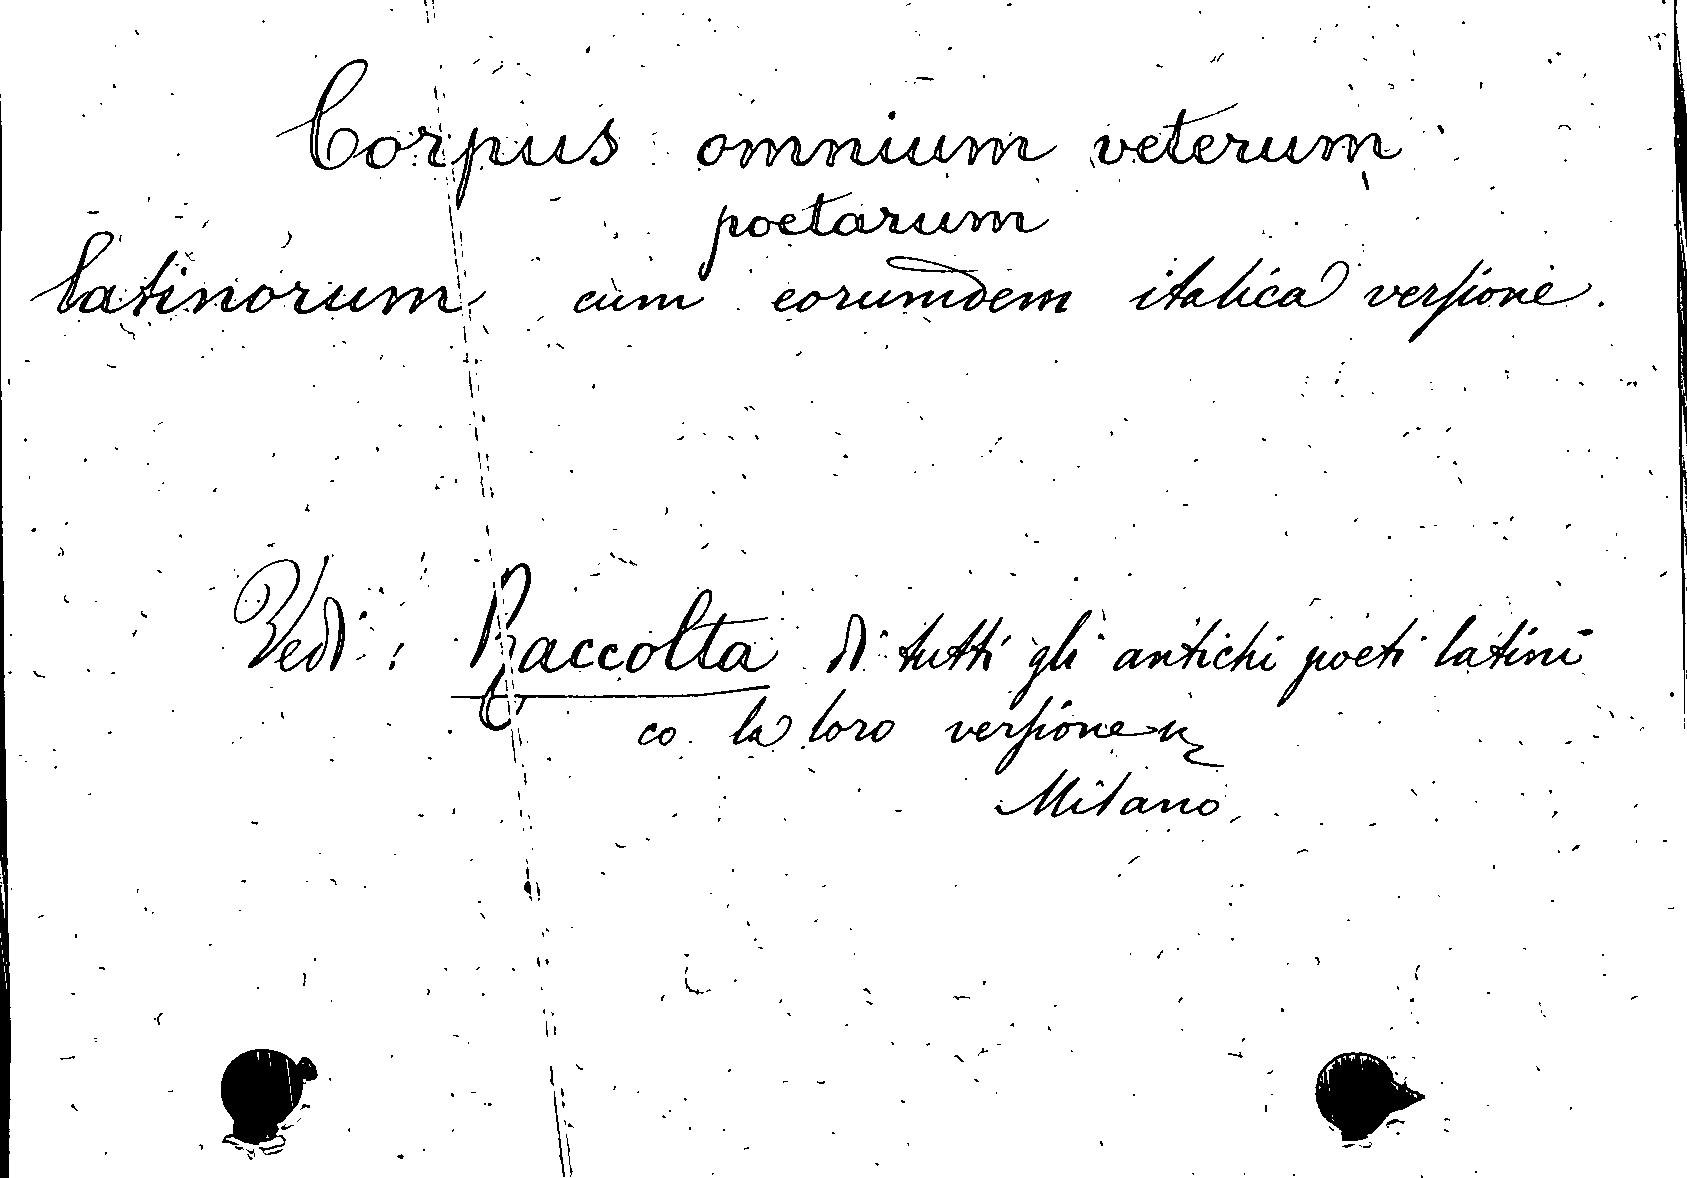 Corpus omnium veterum
poetarum
latinorum cum eorumdem italica versione.
Vedi: Raccolta di tutti gli antichi poeti latini
co la loro versione
Milano